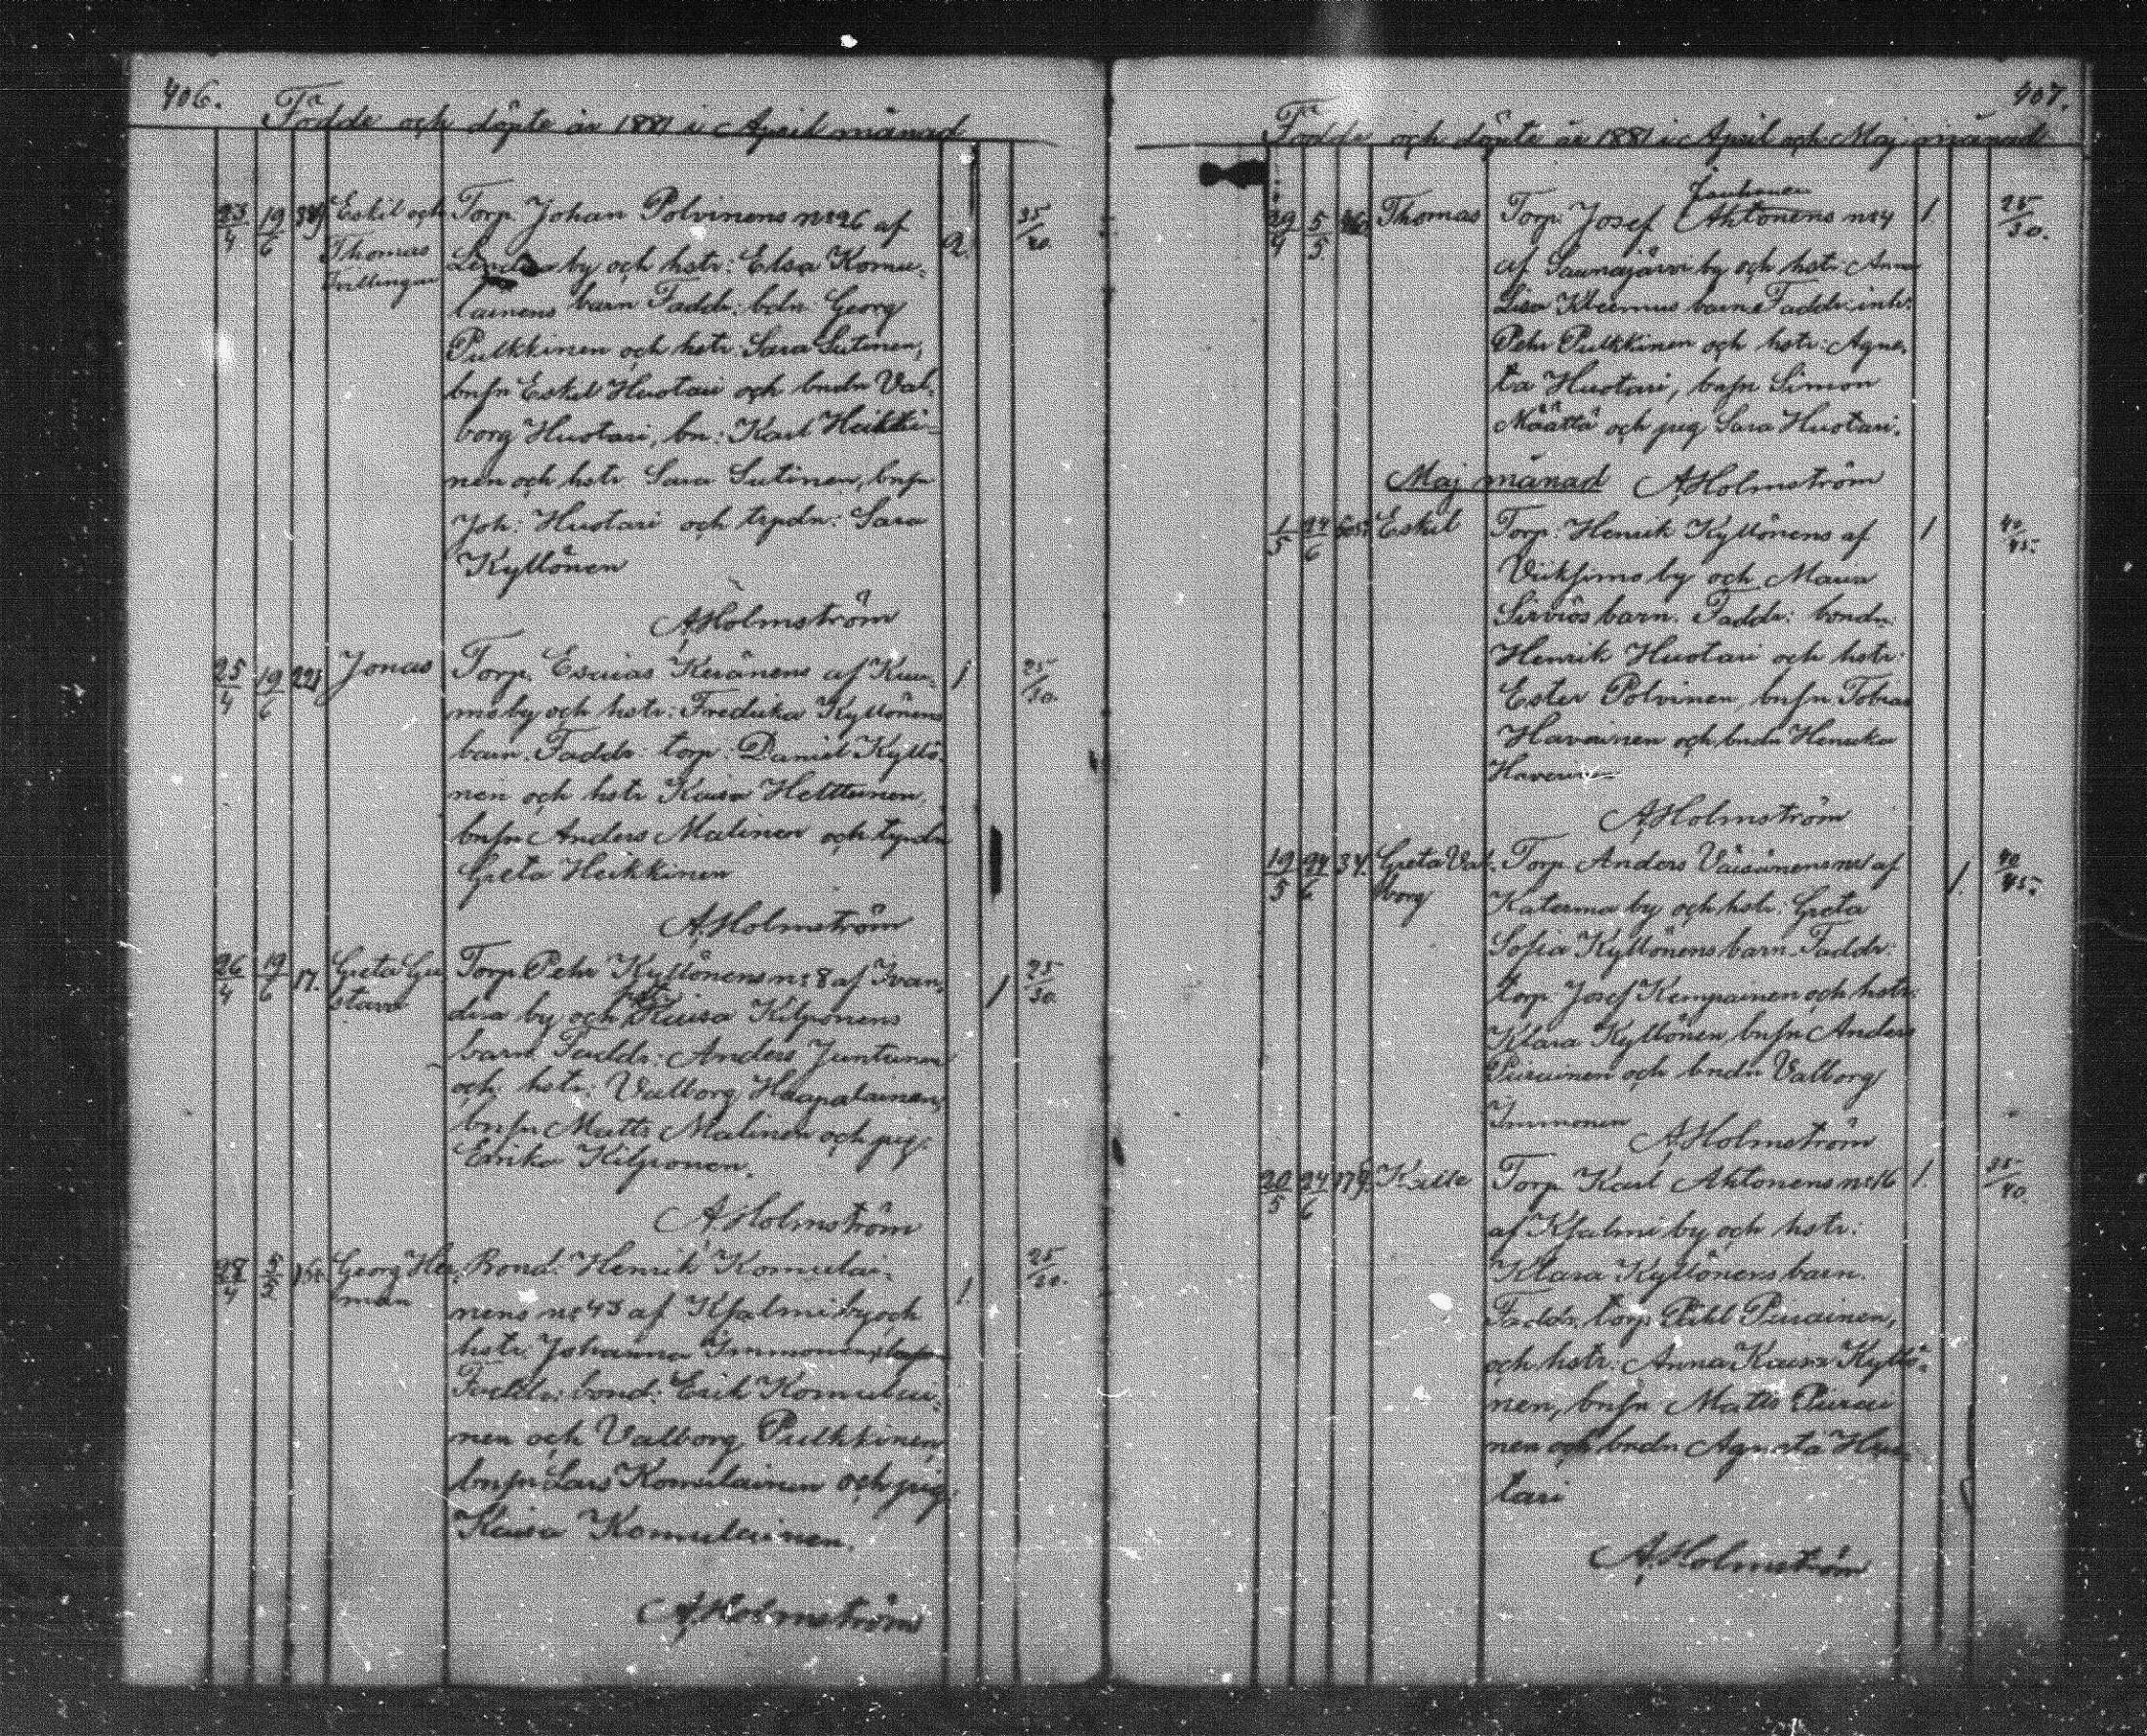 406.
Födde och döpte år 1881 i April månad
23/4 19/6 389 Eskil och Torp. Johan Polvinens nr 26 af 2. 35/40
Thomas by och hstr: Elsa Komu-
Tvillingar lainens barn Faddr: bdn Georg
Pulkkinen och hstr Sara Sutinen,
bnsn Eskil Huotari och bndr Val-
borg Huotari, bn: Karl Heikki-
nen och hstr Sara Sutinen, bnsn
Joh: Huotari och trpdr: Sara
Kyllönen
A Holmström
25/4 19/6 221 Jonas Torp. Esaias Keränens af Kuu-
1 25/30.
mo by och hstr: Fredrika Kyllönens
barn. Faddr: torp: Daniel Kyllö-
nen och hstr Kaisa Helttunen,
bnsn Anders Malinen och trpdr
Greta Heikkinen
A Holmström
26/4 19/6 17. Greta Gu Torp. Pehr Kyllönens nr 8 af Ivan-
1 25/30.
stava dira by och hstr Kaisa Kilponens
barn Faddr: Anders Juntunen
och hstr: Valborg Haapalainen,
bnsn Matts Malinen och pig:
Erika Kilponen.
A Holmström
28/4 5/5 Georg Her- Bond: Henrik Komulai-
1. 25/30.
man nens nr 43 af Kjalmi by och
hstr Johanna Immonens barn
Faddr: bond: Erik Komulai-
nen och Valborg Pulkkinen,
bnsn Lars Komulainen och pig:
Kaisa Komulainen.
A Holmström
407.
Födde och döpte år 1881 i April och Maj månad
Jauhonen
29/4 5/5 Thomas Torp. Josef Aktonens nr 4 1. 25/30.
af Saunajärvi by och hstr: Anna
Lisa Kleemus barn. Faddr: inh:
Pehr Pulkkinen och hstr: Agne-
ta Huotari, bnsn Simon
Määttä och pig Sara Huotari.
Maj månad A Holmström
1/5 24/6 Eskil Torp. Henrik Kyllönens af 1 40/45.
Viiksimo by och Maria
Sirviös barn. Faddr: bondn
Henrik Huotari och hstr:
Ester Polvinen, bnsn Tobias
Havainen och bndr Henrika
A Holmström
19/5 24/6 34. Greta Val- Torp Anders Väisänens nr 1 af 1. 40/45.
borg Katerma by och hstr. Greta
Sofia Kyllönens barn. Faddr:
torp. Josef Kempainen och hstr:
Klara Kyllönen, bnsn Anders
Piirainen och bndr Valborg
Immonen
A Holmström
20/5 24/6 179. Kalle Torp Karl Aktonens nr 16 1. 35/40
af Kjalmi by och hstr:
Klara Kyllönens barn.
Faddr. torp. Påhl Piirainen,
och hstr: Anna Kaisa Kyllö-
nen, bnsn Matts Piirai
nen och bndr Agneta Huo-
tari
A Holmström